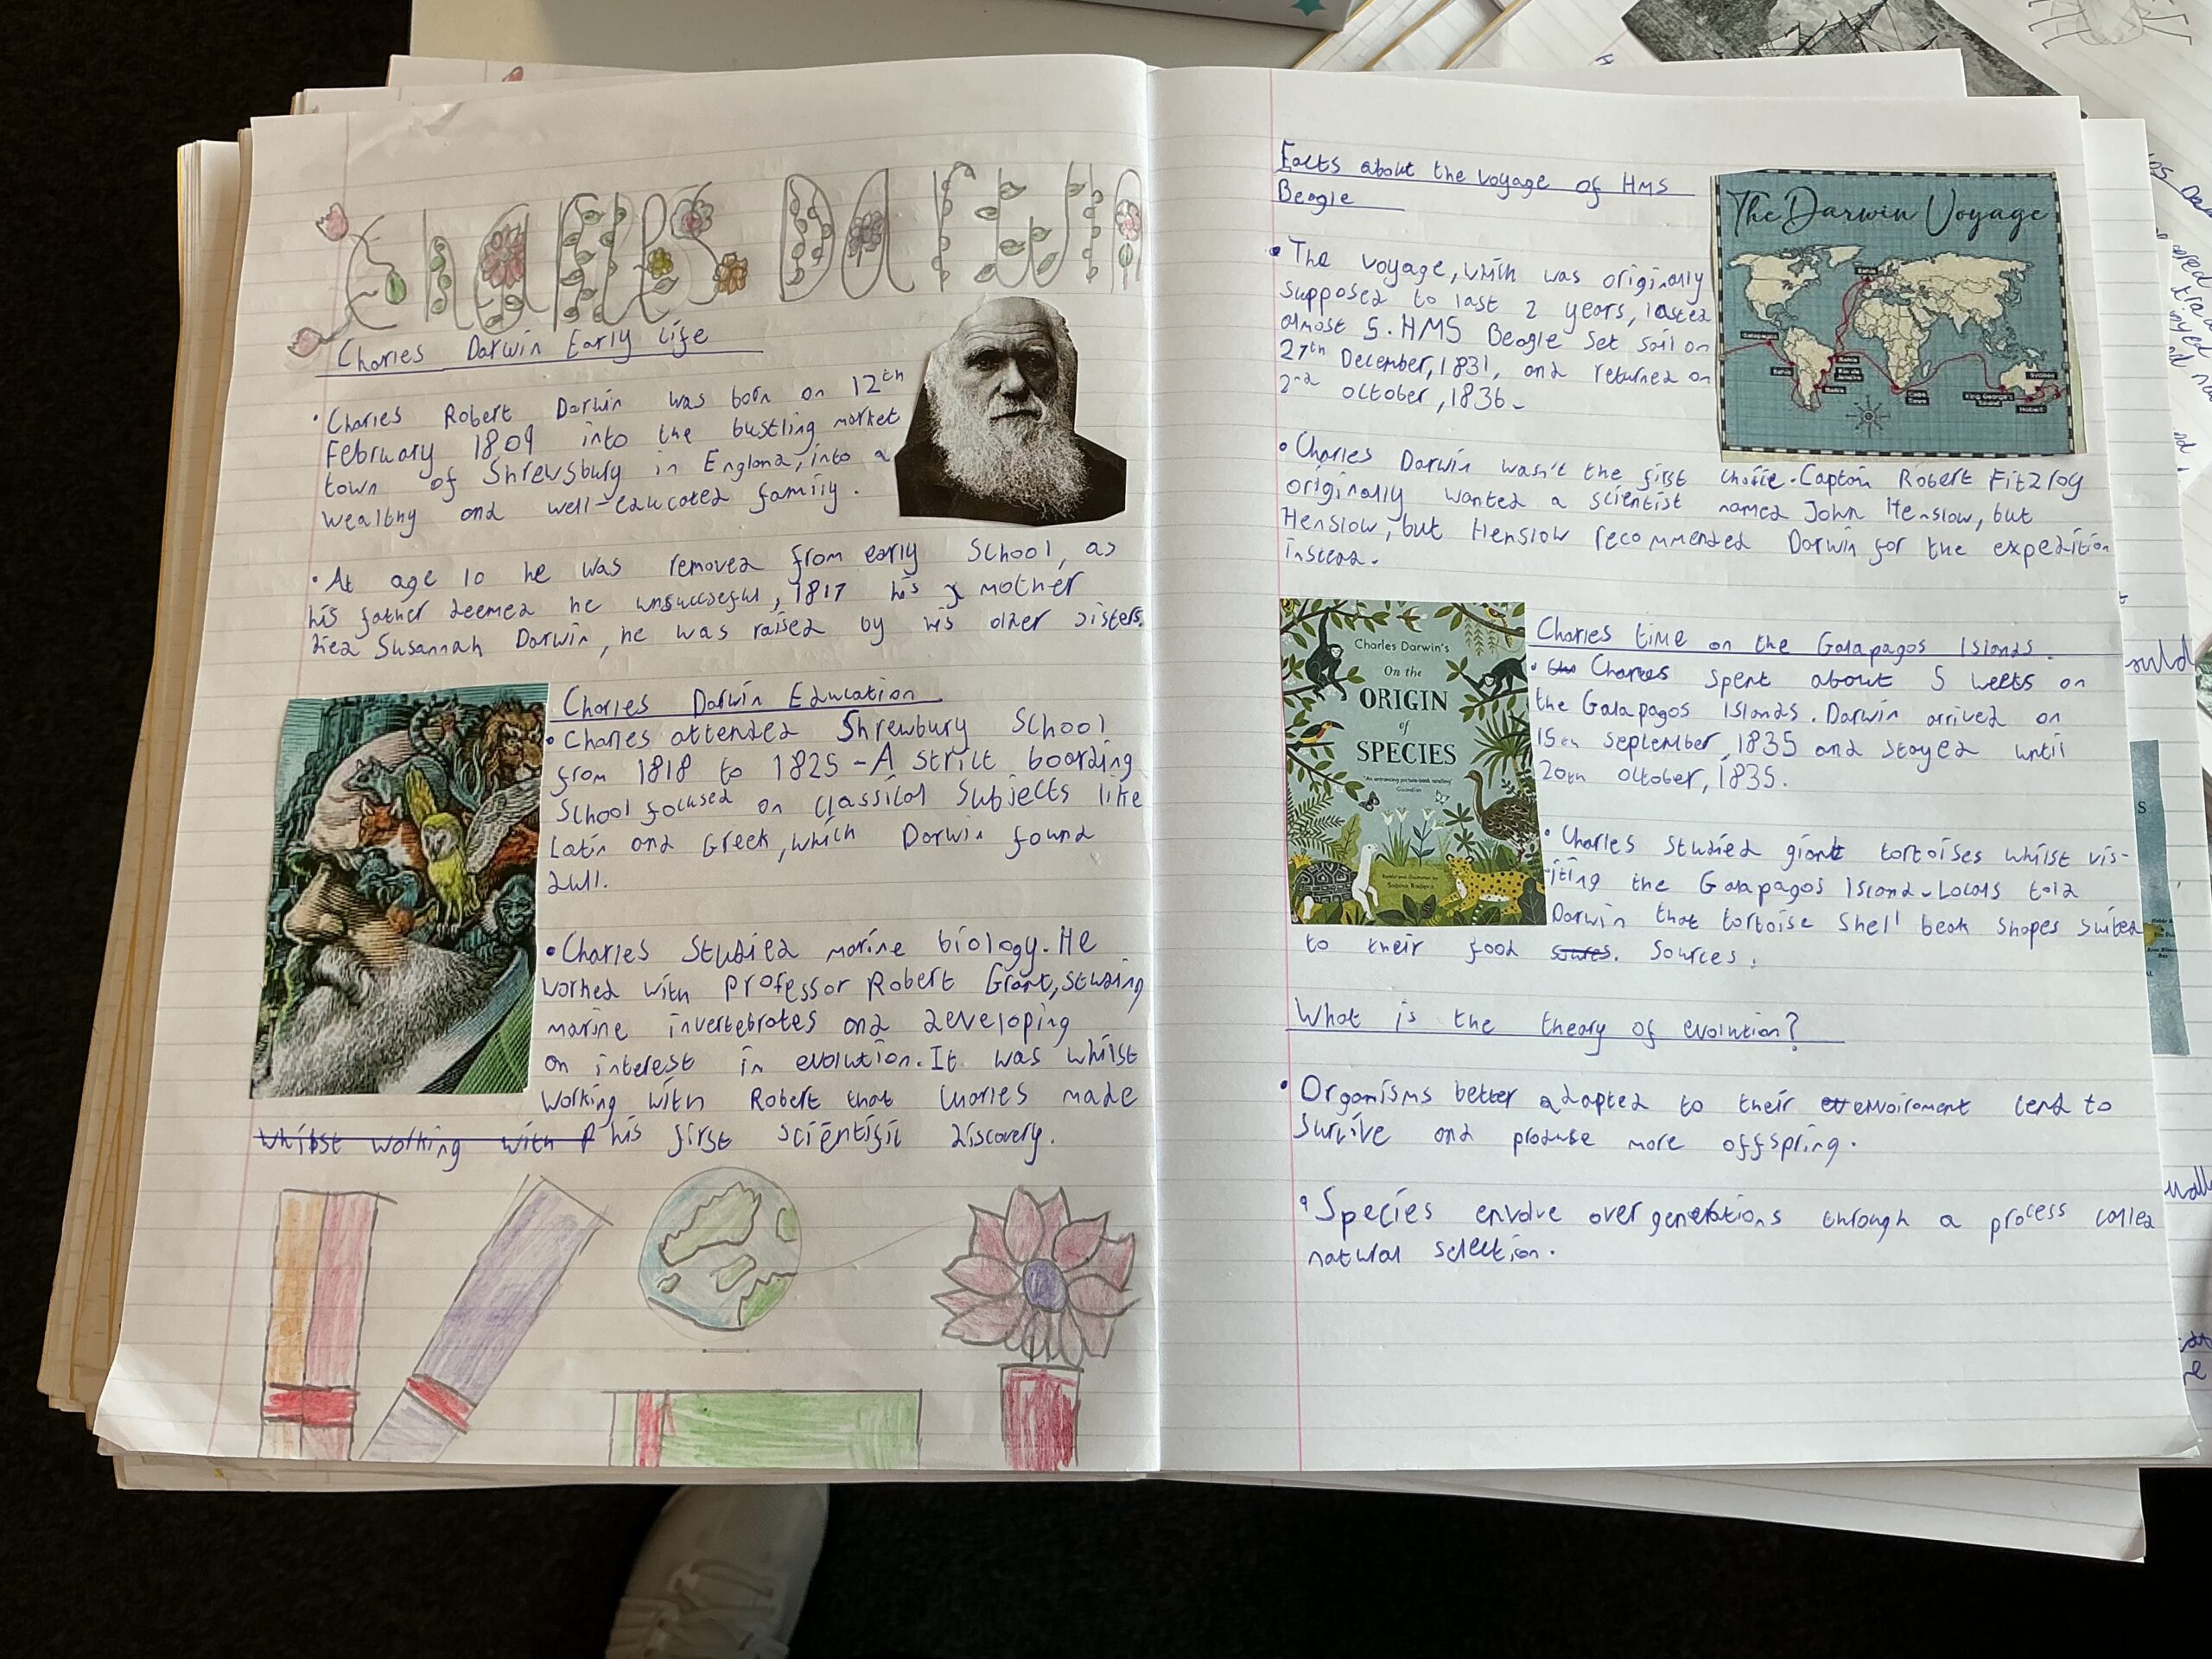 CHARLES DARWIN
Charles Darwin Early Life
• Charles Robert Darwin was born on 12th
February 1809 into the bustling market
town of Shrewsbury in England, into a
wealthy and well-educated family.
• At age 10 he was removed from early School, as
his father deemed he unsuccesful, 1817 his mother
died Susannah Darwin, he was raised by his older sisters.
Charles Darwin Education
• Charles attended Shrewbury School
from 1818 to 1825 - A strict boarding
School focused on classical Subjects like
Latin and Greek, which Darwin found
dull.
• Charles Studied marine biology. He
worked with professor Robert Grant, studing
marine invertebrates and developing
an interest in evolution. It was whilst
working with Robert that Charles made
whilst working with his first scientific discovery.
Facts about the voyage of HMS
Beagle
• The voyage, which was originally
supposed to last 2 years, lasted
almost 5. HMS Beagle Set sail on
27th December, 1831, and returned on
2nd october, 1836.
The Darwin Voyage
• Charles Darwin wasn't the first choice. Captain Robert Fitzroy
originally wanted a scientist named John Henslow, but
Henslow, but Henslow recommended Darwin for the expedition
instead.
Charles Darwin's
On the
ORIGIN
of
SPECIES
"An entrancing picture-book retelling"
Guardian
Retold and illustrated by
Sabina Radeva
Charles time on the Galapagos Islands.
• Charles spent about 5 weeks on
the Galapagos Islands. Darwin arrived on
15th September, 1835 and stayed until
20th october, 1835.
• Charles studied giant tortoises whilst vis-
iting the Galapagos Island. Locals told
Darwin that tortoise Shell beak shapes suited
to their food sources. Sources.
What is the theory of evolution?
• Organisms better adapted to their envoiroment tend to
Survive and produse more offspring.
• Species envolve over generations through a process called
natural selection.